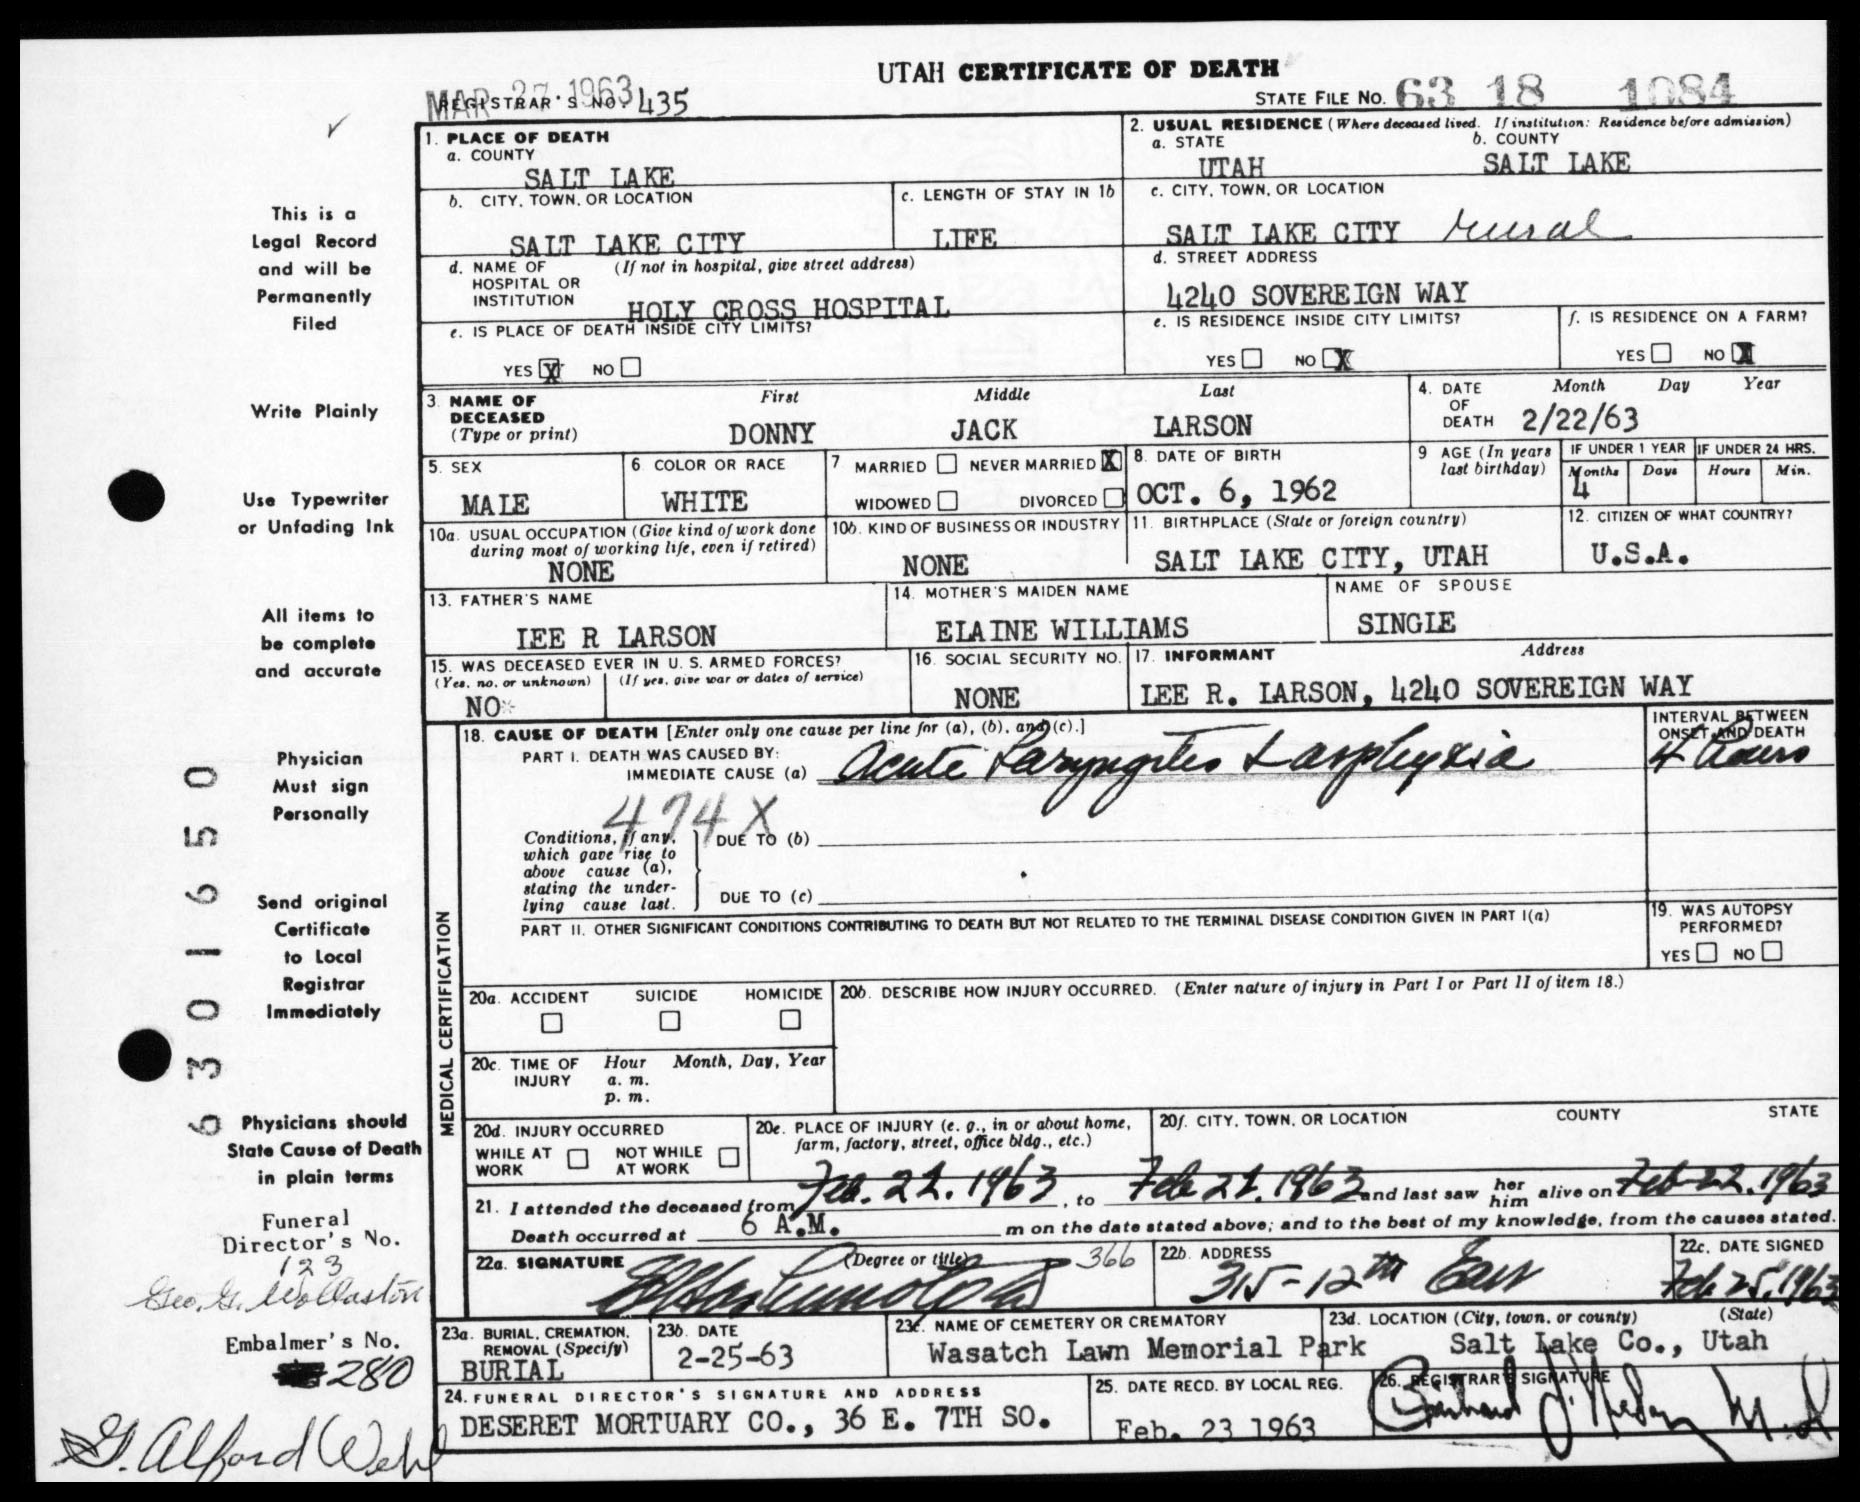 UTAH CERTIFICATE OF DEATH
MAR 27 1963
REGISTRAR'S NO. 435
STATE FILE NO. 63 18 1084
1. PLACE OF DEATH
a. COUNTY
SALT LAKE
2. USUAL RESIDENCE (Where deceased lived. If institution: Residence before admission)
a. STATE b. COUNTY
UTAH SALT LAKE
b. CITY, TOWN, OR LOCATION
SALT LAKE CITY
c. LENGTH OF STAY IN 1b
LIFE
c. CITY, TOWN, OR LOCATION
SALT LAKE CITY rural
d. NAME OF HOSPITAL OR INSTITUTION (If not in hospital, give street address)
HOLY CROSS HOSPITAL
d. STREET ADDRESS
4240 SOVEREIGN WAY
e. IS PLACE OF DEATH INSIDE CITY LIMITS?
YES X NO
e. IS RESIDENCE INSIDE CITY LIMITS?
YES NO X
f. IS RESIDENCE ON A FARM?
YES NO X
3. NAME OF DECEASED (Type or print)
First Middle Last
DONNY JACK LARSON
4. DATE OF DEATH Month Day Year
2/22/63
5. SEX
MALE
6. COLOR OR RACE
WHITE
7 MARRIED NEVER MARRIED X
WIDOWED DIVORCED
8. DATE OF BIRTH
OCT. 6, 1962
9 AGE (In years last birthday)
IF UNDER 1 YEAR IF UNDER 24 HRS.
Months Days Hours Min.
4
10a. USUAL OCCUPATION (Give kind of work done during most of working life, even if retired)
NONE
10b. KIND OF BUSINESS OR INDUSTRY
NONE
11. BIRTHPLACE (State or foreign country)
SALT LAKE CITY, UTAH
12. CITIZEN OF WHAT COUNTRY?
U.S.A.
13. FATHER'S NAME
LEE R LARSON
14. MOTHER'S MAIDEN NAME
ELAINE WILLIAMS
NAME OF SPOUSE
SINGLE
15. WAS DECEASED EVER IN U. S. ARMED FORCES?
(Yes, no, or unknown) (If yes, give war or dates of service)
NO
16. SOCIAL SECURITY NO.
NONE
17. INFORMANT Address
LEE R. LARSON, 4240 SOVEREIGN WAY
MEDICAL CERTIFICATION
18. CAUSE OF DEATH [Enter only one cause per line for (a), (b), and (c).]
PART I. DEATH WAS CAUSED BY:
IMMEDIATE CAUSE (a) Acute Laryngitis & asphyxia
INTERVAL BETWEEN ONSET AND DEATH
4 hours
474X
Conditions, if any, which gave rise to above cause (a), stating the underlying cause last.
DUE TO (b)
DUE TO (c)
PART II. OTHER SIGNIFICANT CONDITIONS CONTRIBUTING TO DEATH BUT NOT RELATED TO THE TERMINAL DISEASE CONDITION GIVEN IN PART I(a)
19. WAS AUTOPSY PERFORMED?
YES NO
20a. ACCIDENT SUICIDE HOMICIDE
20b. DESCRIBE HOW INJURY OCCURRED. (Enter nature of injury in Part I or Part II of item 18.)
20c. TIME OF INJURY Hour Month, Day, Year
a. m.
p. m.
20d. INJURY OCCURRED
WHILE AT WORK NOT WHILE AT WORK
20e. PLACE OF INJURY (e. g., in or about home, farm, factory, street, office bldg., etc.)
20f. CITY, TOWN, OR LOCATION COUNTY STATE
21. I attended the deceased from Feb. 22. 1963, to Feb 22. 1963 and last saw her him alive on Feb-22. 1963
Death occurred at 6 A.M. m on the date stated above; and to the best of my knowledge, from the causes stated.
22a. SIGNATURE (Degree or title) 366
22b. ADDRESS
315-12th East
22c. DATE SIGNED
Feb 25, 1963
23a. BURIAL, CREMATION, REMOVAL (Specify)
BURIAL
23b. DATE
2-25-63
23c. NAME OF CEMETERY OR CREMATORY
Wasatch Lawn Memorial Park
23d. LOCATION (City, town, or county) (State)
Salt Lake Co., Utah
24. FUNERAL DIRECTOR'S SIGNATURE AND ADDRESS
DESERET MORTUARY CO., 36 E. 7TH SO.
25. DATE RECD. BY LOCAL REG.
Feb. 23 1963
26. REGISTRAR'S SIGNATURE
This is a
Legal Record
and will be
Permanently
Filed
Write Plainly
Use Typewriter
or Unfading Ink
All items to
be complete
and accurate
Physician
Must sign
Personally
Send original
Certificate
to Local
Registrar
Immediately
Physicians should
State Cause of Death
in plain terms
Funeral
Director's No.
123
Geo. G. Wollaston
Embalmer's No.
280
G. Alford Wehl
6301650